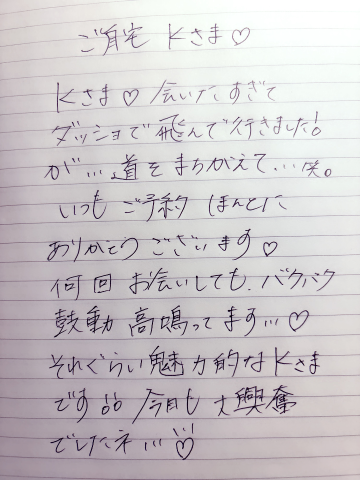 ご自宅 Kさま♡
Kさま♡会いたすぎて
ダッショで飛んで行きました!
が...道をまちがえて...笑。
いつもご予約ほんとに
ありがとうございます♡
何回お会いしても、バクバク
鼓動高鳴ってます...♡
それぐらい魅力的なKさま
です 今日も大興奮
でしたネ...♡